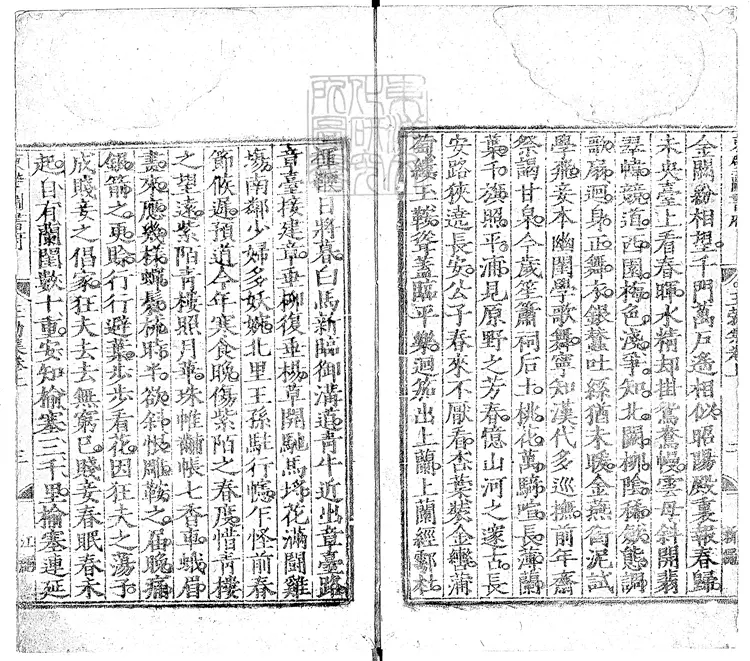 金闕紛相望千門萬戶遙相似昭陽殿裏報春歸
未央臺上看春暉水精却掛鴛鴦幔雲母斜開翡
翠幃競道西園梅色淺爭知北闕柳陰稀敍態調
歌扇迴身正舞衣銀蠶吐絲猶未暖金燕銜泥試
學飛妾本幽閨學歌舞寧知漢代多巡撫前年齋
祭謁甘泉今歲笙簫祠后土桃花萬騎喧長薄蘭
葉千旗照平浦見原野之芳春憶山河之邃古長
安路狹遶長安公子春來不厭看杏葉裝金轡蒲
萄縷玉鞍聳蓋臨平樂迴笳出上蘭上蘭經鄠杜
揮鞭日將暮白馬新臨御溝道青牛近出章臺路
章臺接建章垂柳復垂楊草開馳馬埒花滿鬪雞
塲南鄰少婦多妖婉北里王孫駐行幰乍怪前春
節候遲預道今年寒食晚傷紫陌之春度惜青樓
之望遠紫陌青樓照月華珠帷黼帳七香車蛾眉
畫來應幾樣蟬鬢梳時半欲斜恨雕鞍之届晚痛
銀箭之更賒行行避葉步步看花因狂夫之蕩子
成賤妾之倡家狂夫去去無窮已賤妾春眠春未
起自有蘭閨數十重安知榆塞三千里榆塞連延